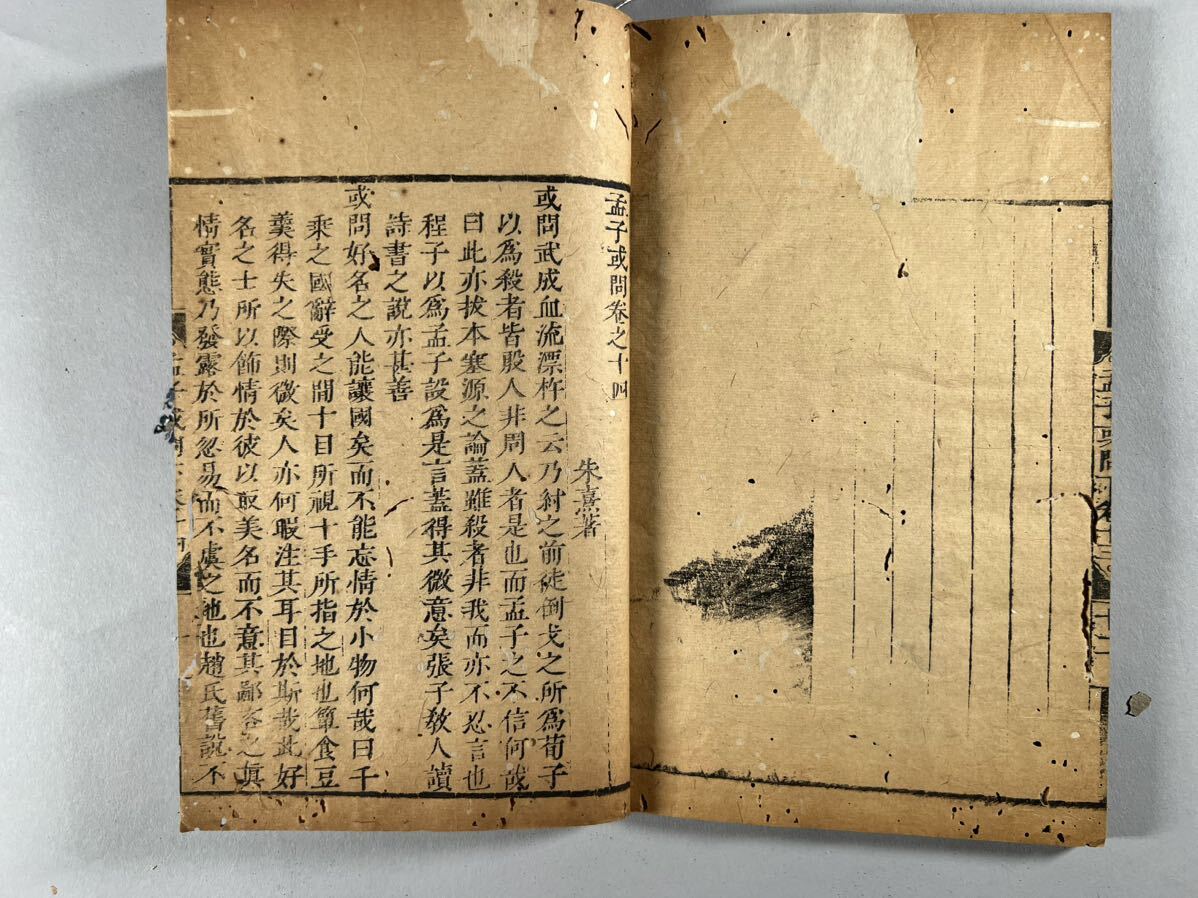 孟子或問 卷十三
十一
孟子或問卷之十四
朱熹著
或問武成血流漂杵之云乃紂之前徒倒戈之所為荀子
以為殺者皆殷人非周人者是也而孟子之不信何哉
曰此亦拔本塞源之論蓋雖殺者非我而亦不忍言也
程子以為孟子設為是言蓋得其微意矣張子教人讀
詩書之說亦甚善
或問好名之人能讓國矣而不能忘情於小物何哉曰千
乘之國辭受之間十目所視十手所指之地也簞食豆
羹得失之際則微矣人亦何暇注其耳目於斯哉此好
名之士所以飾情於彼以取美名而不意其鄙吝之真
情實態乃發露於所忽易而不虞之地也趙氏舊說不
孟子或問 卷十四
一